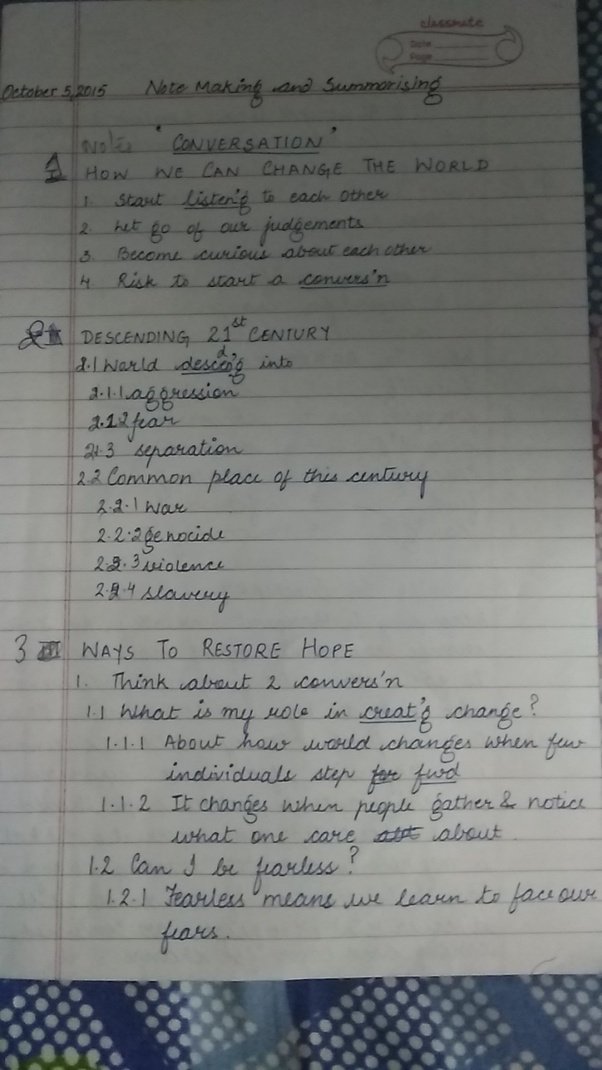 classmate
Date
Page
October 5, 2015 Note Making and Summarising
Notes "CONVERSATION"
1 HOW WE CAN CHANGE THE WORLD
1. Start listen'g to each other
2. Let go of our judgements
3. Become curious about each other
4. Risk to start a convers'n
2 DESCENDING 21st CENTURY
2.1 World descend'g into
2.1.1 aggression
2.1.2 fear
2.1.3 separation
2.2 Common place of this century
2.2.1 war
2.2.2 genocide
2.2.3 violence
2.2.4 slavery
3 III WAYS TO RESTORE HOPE
1. Think about 2 convers'n
1.1 What is my role in creat'g change?
1.1.1 About how world changes when few
individuals step for fwd
1.1.2 It changes when people gather & notice
what one care abt about
1.2 Can I be fearless?
1.2.1 Fearless means we learn to face our
fears.